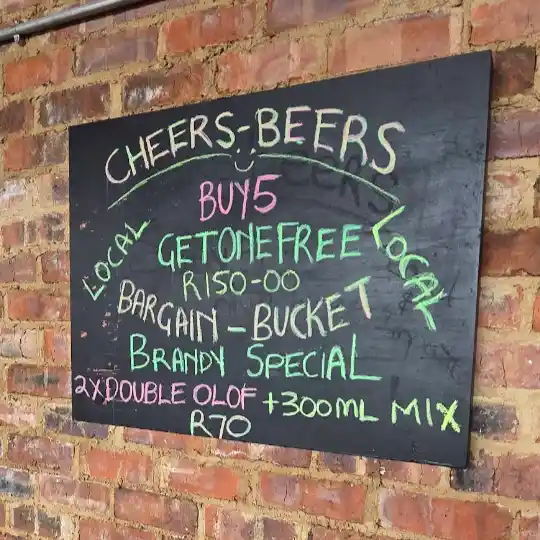 CHEERS-BEERS
BUY5
LOCAL
GETONEFREE
LOCAL
R150-00
BARGAIN-BUCKET
BRANDY SPECIAL
2X DOUBLE OLOF +300ML MIX
R70